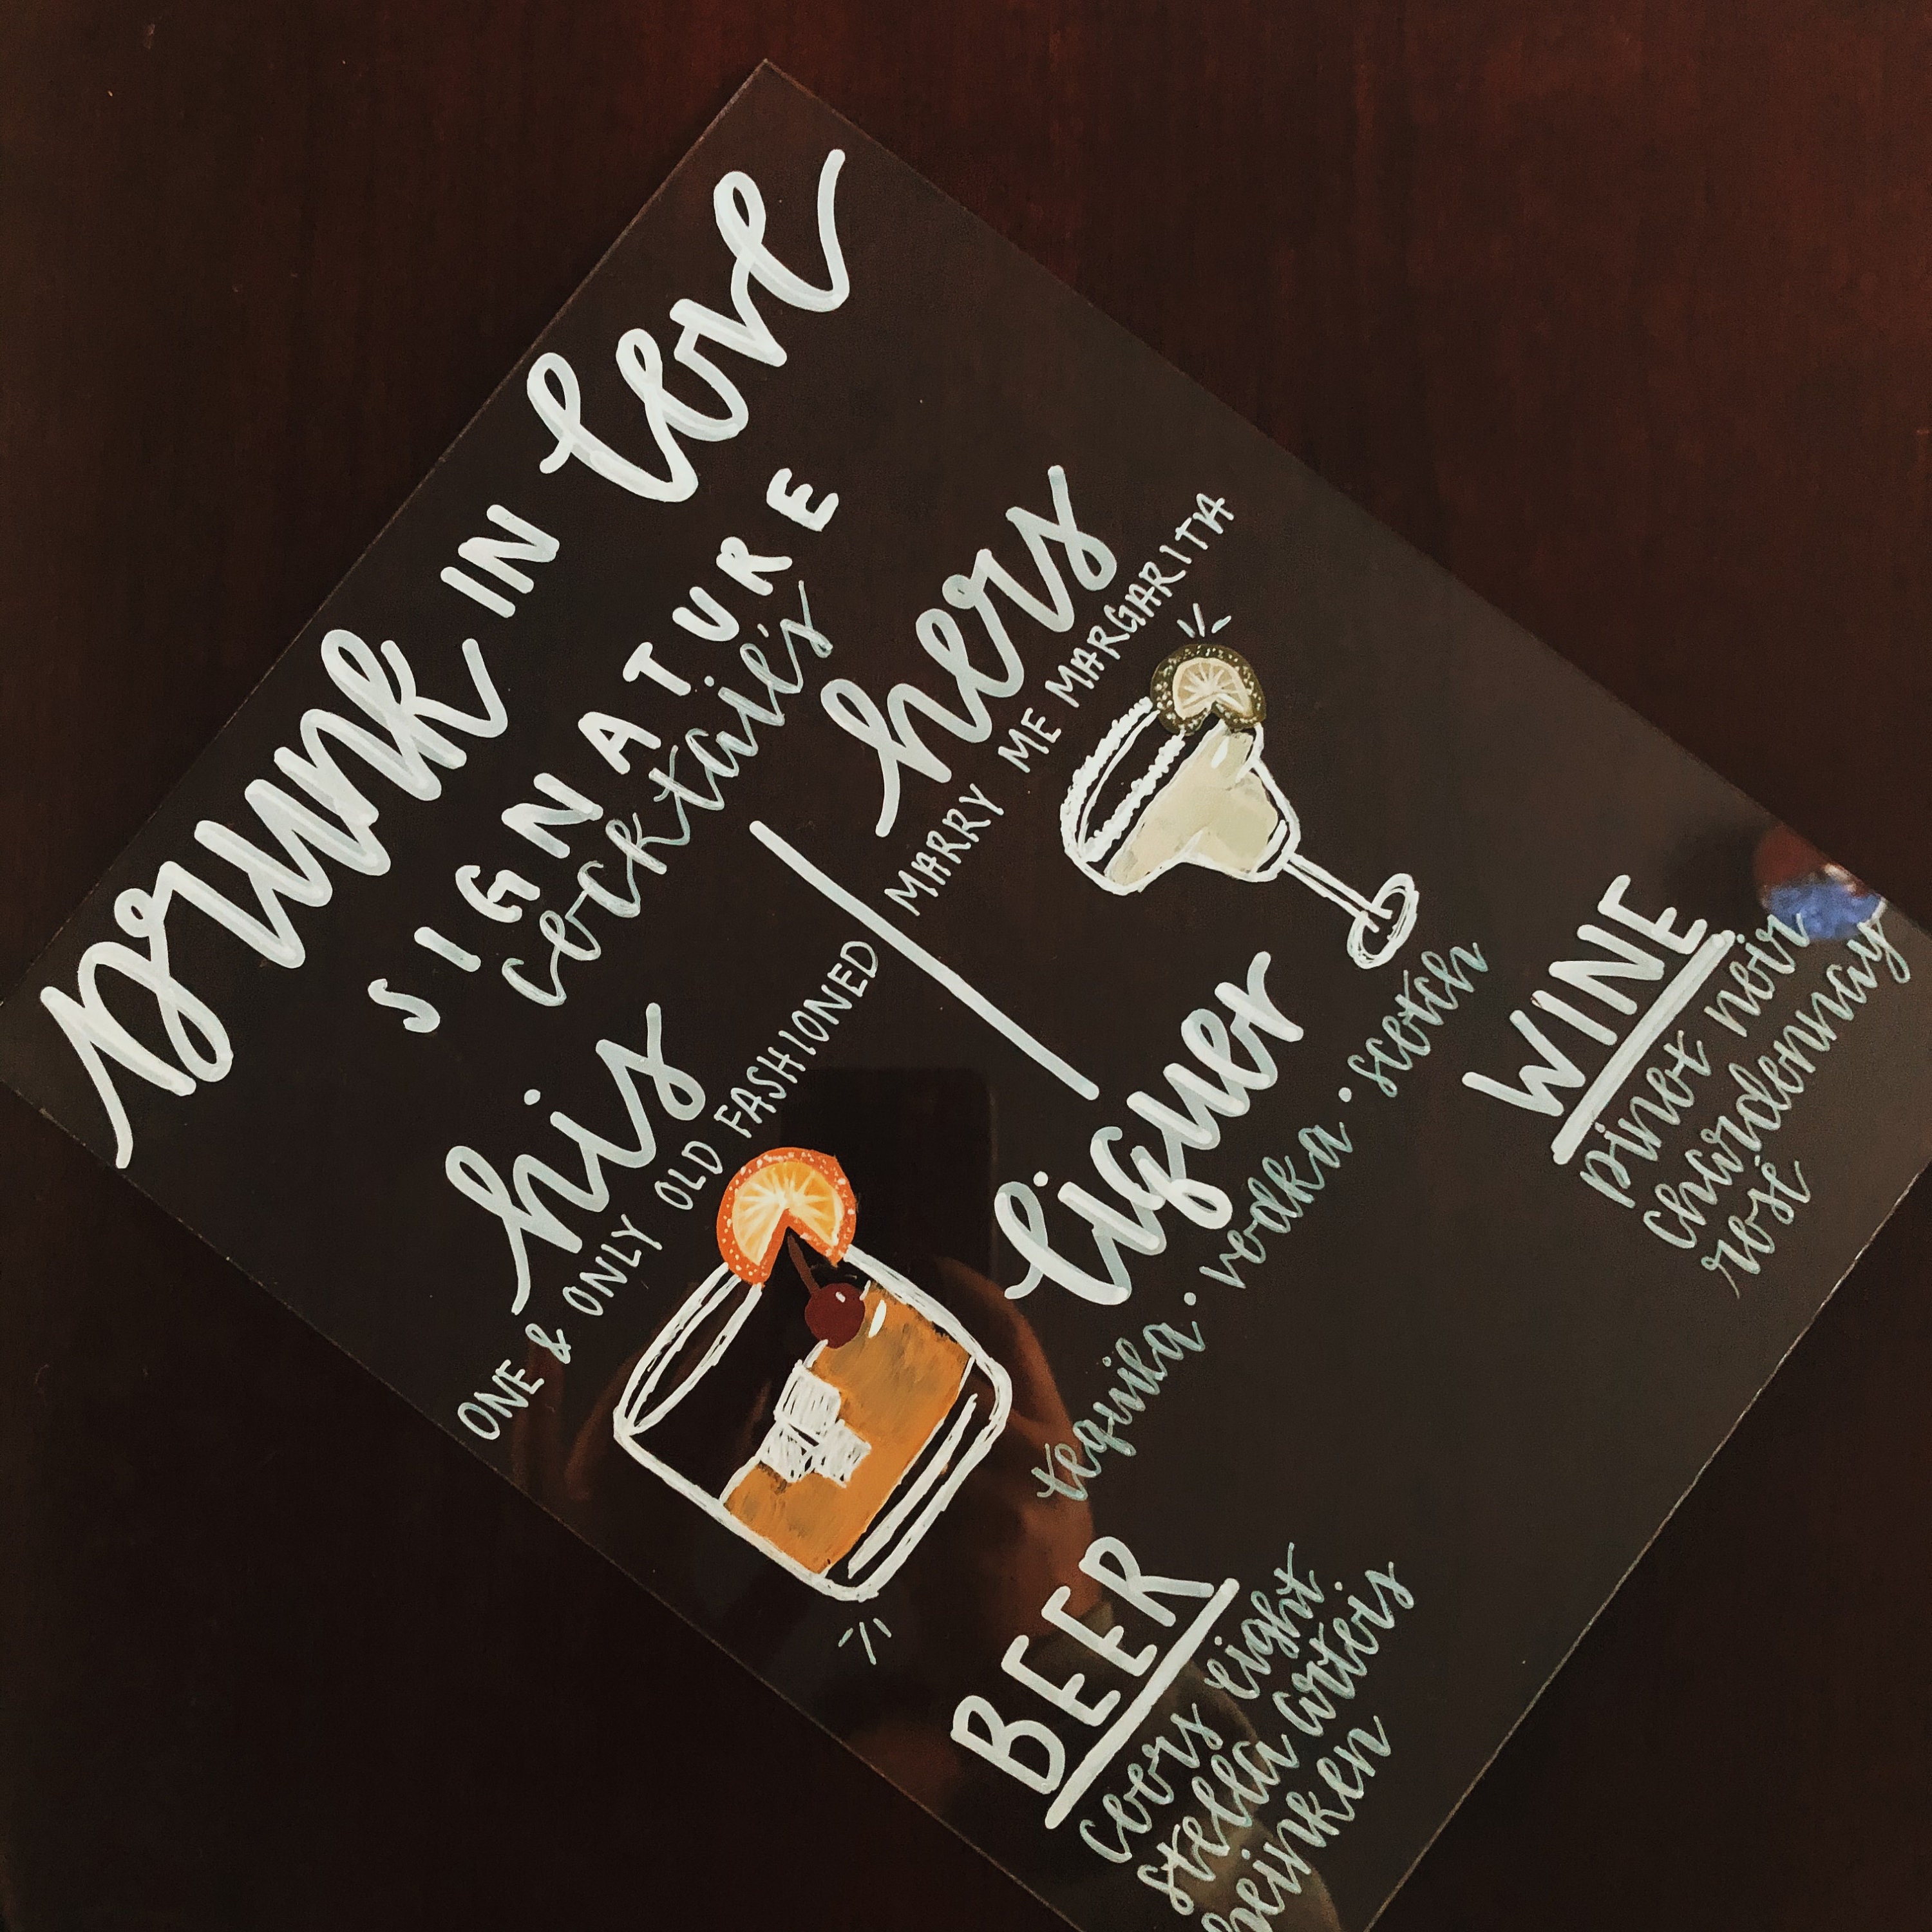 Drunk IN love
SIGNATURE
cocktails
his
ONE & ONLY OLD FASHIONED
hers
MARRY ME MARGARITA
liquor
tequila · vodka · scotch
BEER
coors light
stella artois
heinken
WINE
pinot noir
chardonnay
rosé